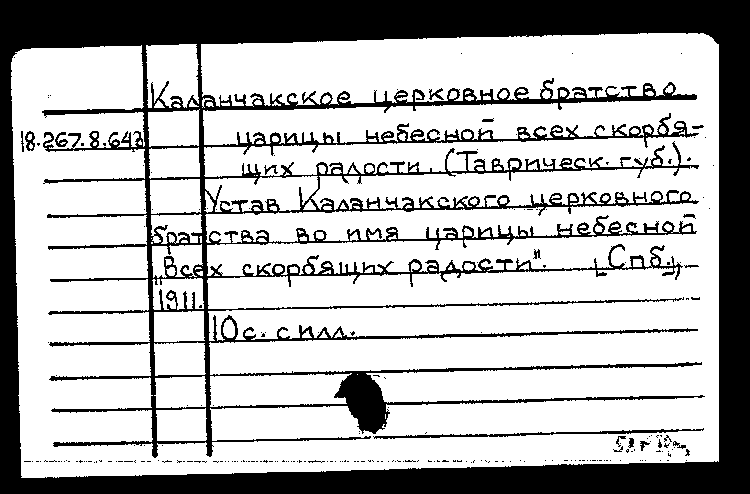 Каланчакское церковное братство
18.267.8.643 царицы небесной всех скорбя-
щих радости. (Таврическ. губ.).
Устав Каланчакского церковного
братства во имя царицы небесной
„Всех скорбящих радости". [Спб.],
1911.
10 с. с илл.